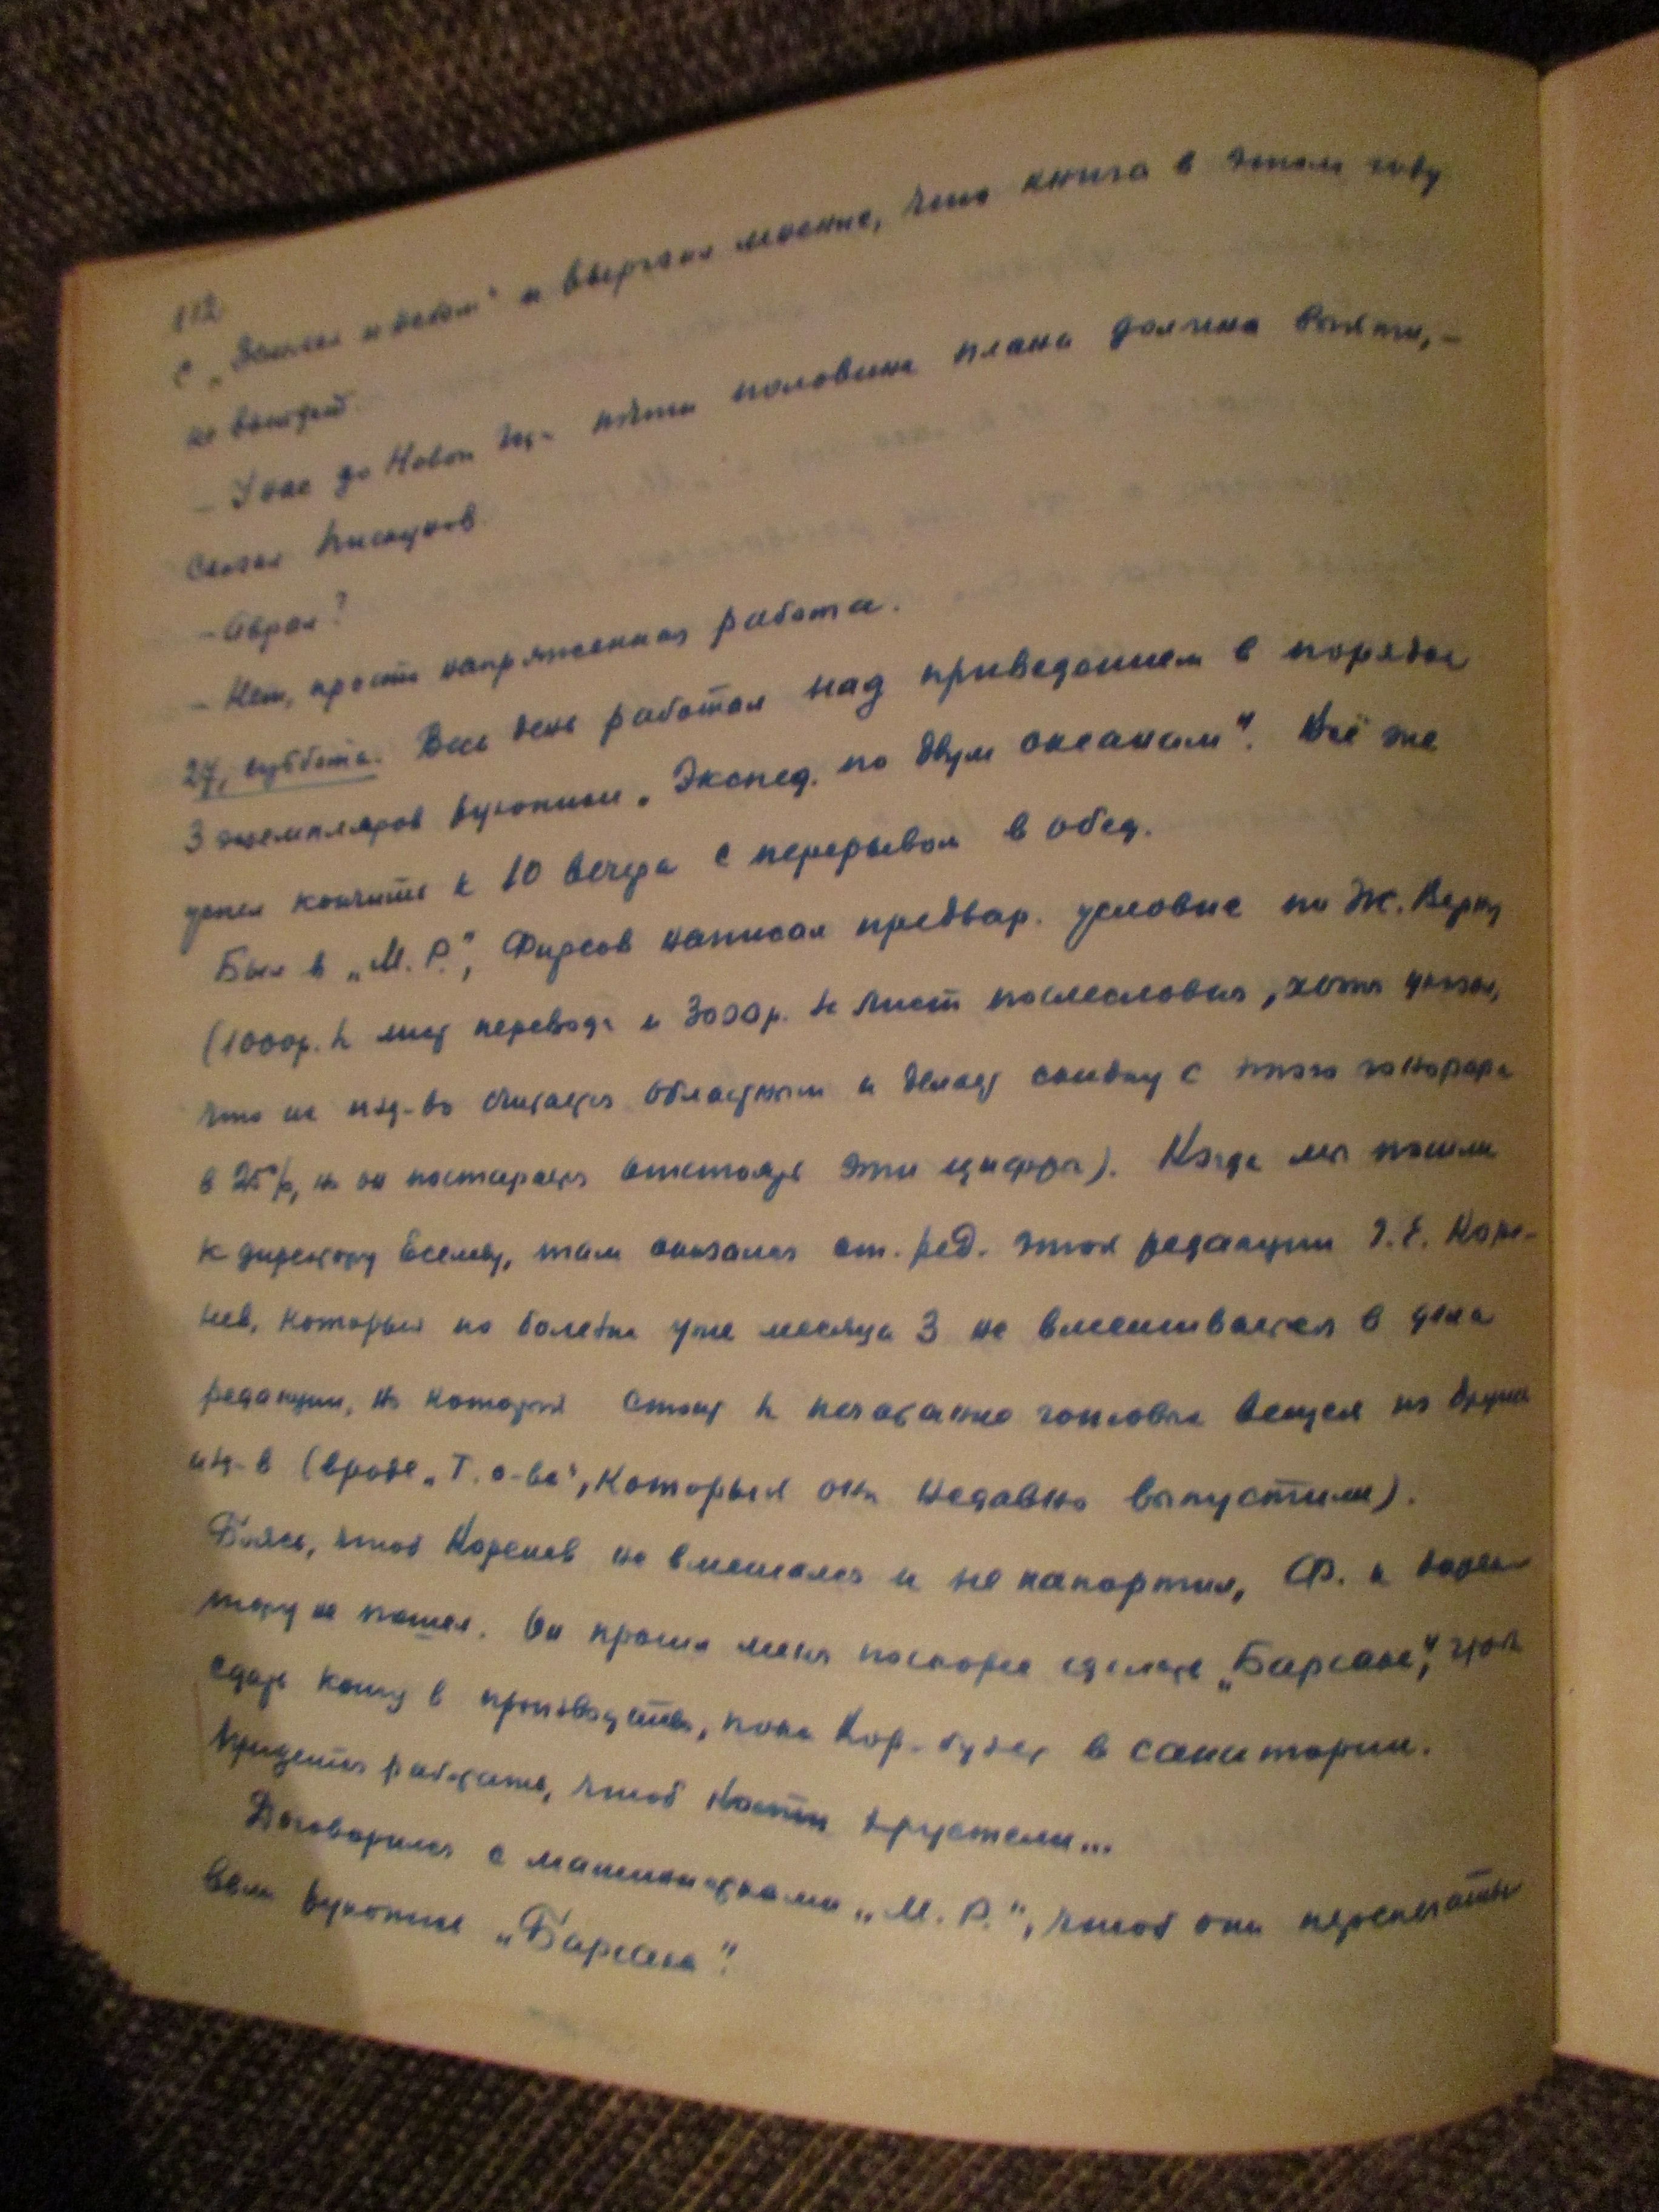 112
с „Землей и небом" и выразил мнение, что книга в этом году
не выйдет.
– У нас до Новой Год- почти половина плана должна выйти, –
сказал Пискунов.
– Аврал?
– Нет, просто напряженная работа.
27, суббота. Весь день работал над приведением в порядок
3 экземпляров рукописи „Экспед. по двум океанам". Всё же
успел кончить к 10 вечера с перерывом в обед.
Был в „М. Р.", Фирсов написал предвар. условие по Ж. Верну
(1000р. за лист перевода и 3000р. за лист послесловия, хотя указал,
что их изд-во считается областным и делают скидку с этого гонорара
в 25%, но он постарается отстоять эти цифры). Когда мы пошли
к директору Еселеву, там оказался от. ред. этой редакции Коре-
нев, который по болезни уже месяца 3 не вмешивается в дела
редакции, но который стоит за печатание готовых вещей из других
изд-в (вроде „Т. о-ва", который они недавно выпустили).
Боясь, чтоб Коренев не вмешался и не напортил, Ф. к
не пошел. Он просил меня поскорее сделать „Барсака", чтоб
сдать книгу в производство, пока Кор. будет в санатории.
Придется работать, чтоб кости хрустели...
Договорился с машинистками „М. Р.", чтоб они перепечатали
всю рукопись „Барсака".